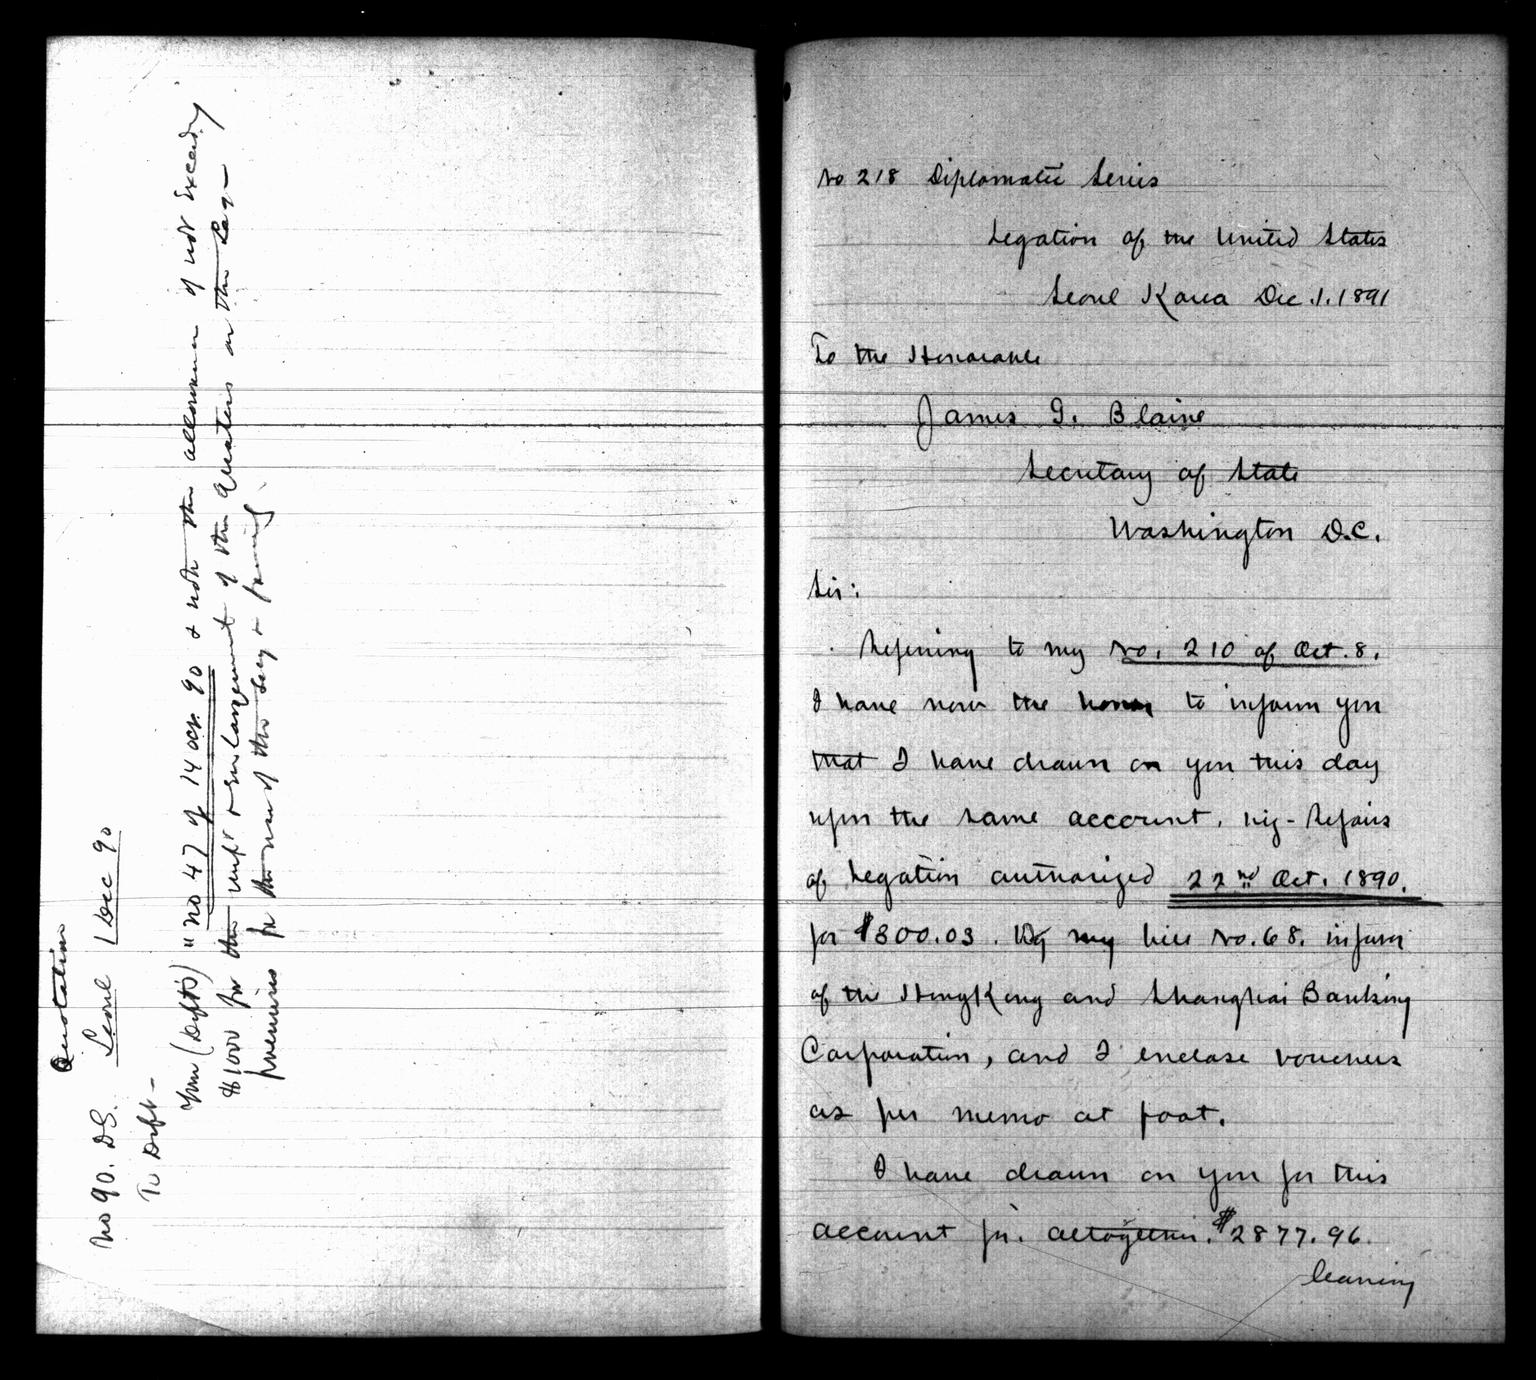 Quotation
No 90. D.S. Seoul 1 Dec 90
To Dept -
Your (Dept's) "no 47 of 14 Oct. 90 & note the allowance of not exceedg
$1000 for the rent & enlargement of the Quarters on the Leg-
premises for the use of the Secy & family
No 218 Diplomatic Series
Legation of the United States
Seoul Korea Dec. 1. 1891
To the Honorable
James G. Blaine
Secretary of State
Washington D.C.
Sir:
Refering to my No. 210 of Oct. 8.
I have now the honor to inform you
that I have drawn on you this day
upon the same account, viz- Repairs
of Legation authorized 22nd Oct. 1890.
for $300.03. By my bill No. 68. in favor
of the HongKong and Shanghai Banking
Corporation, and I enclose vouchers
as per memo at foot.
I have drawn on you for this
account for. altogether. $2877.96.
leaving